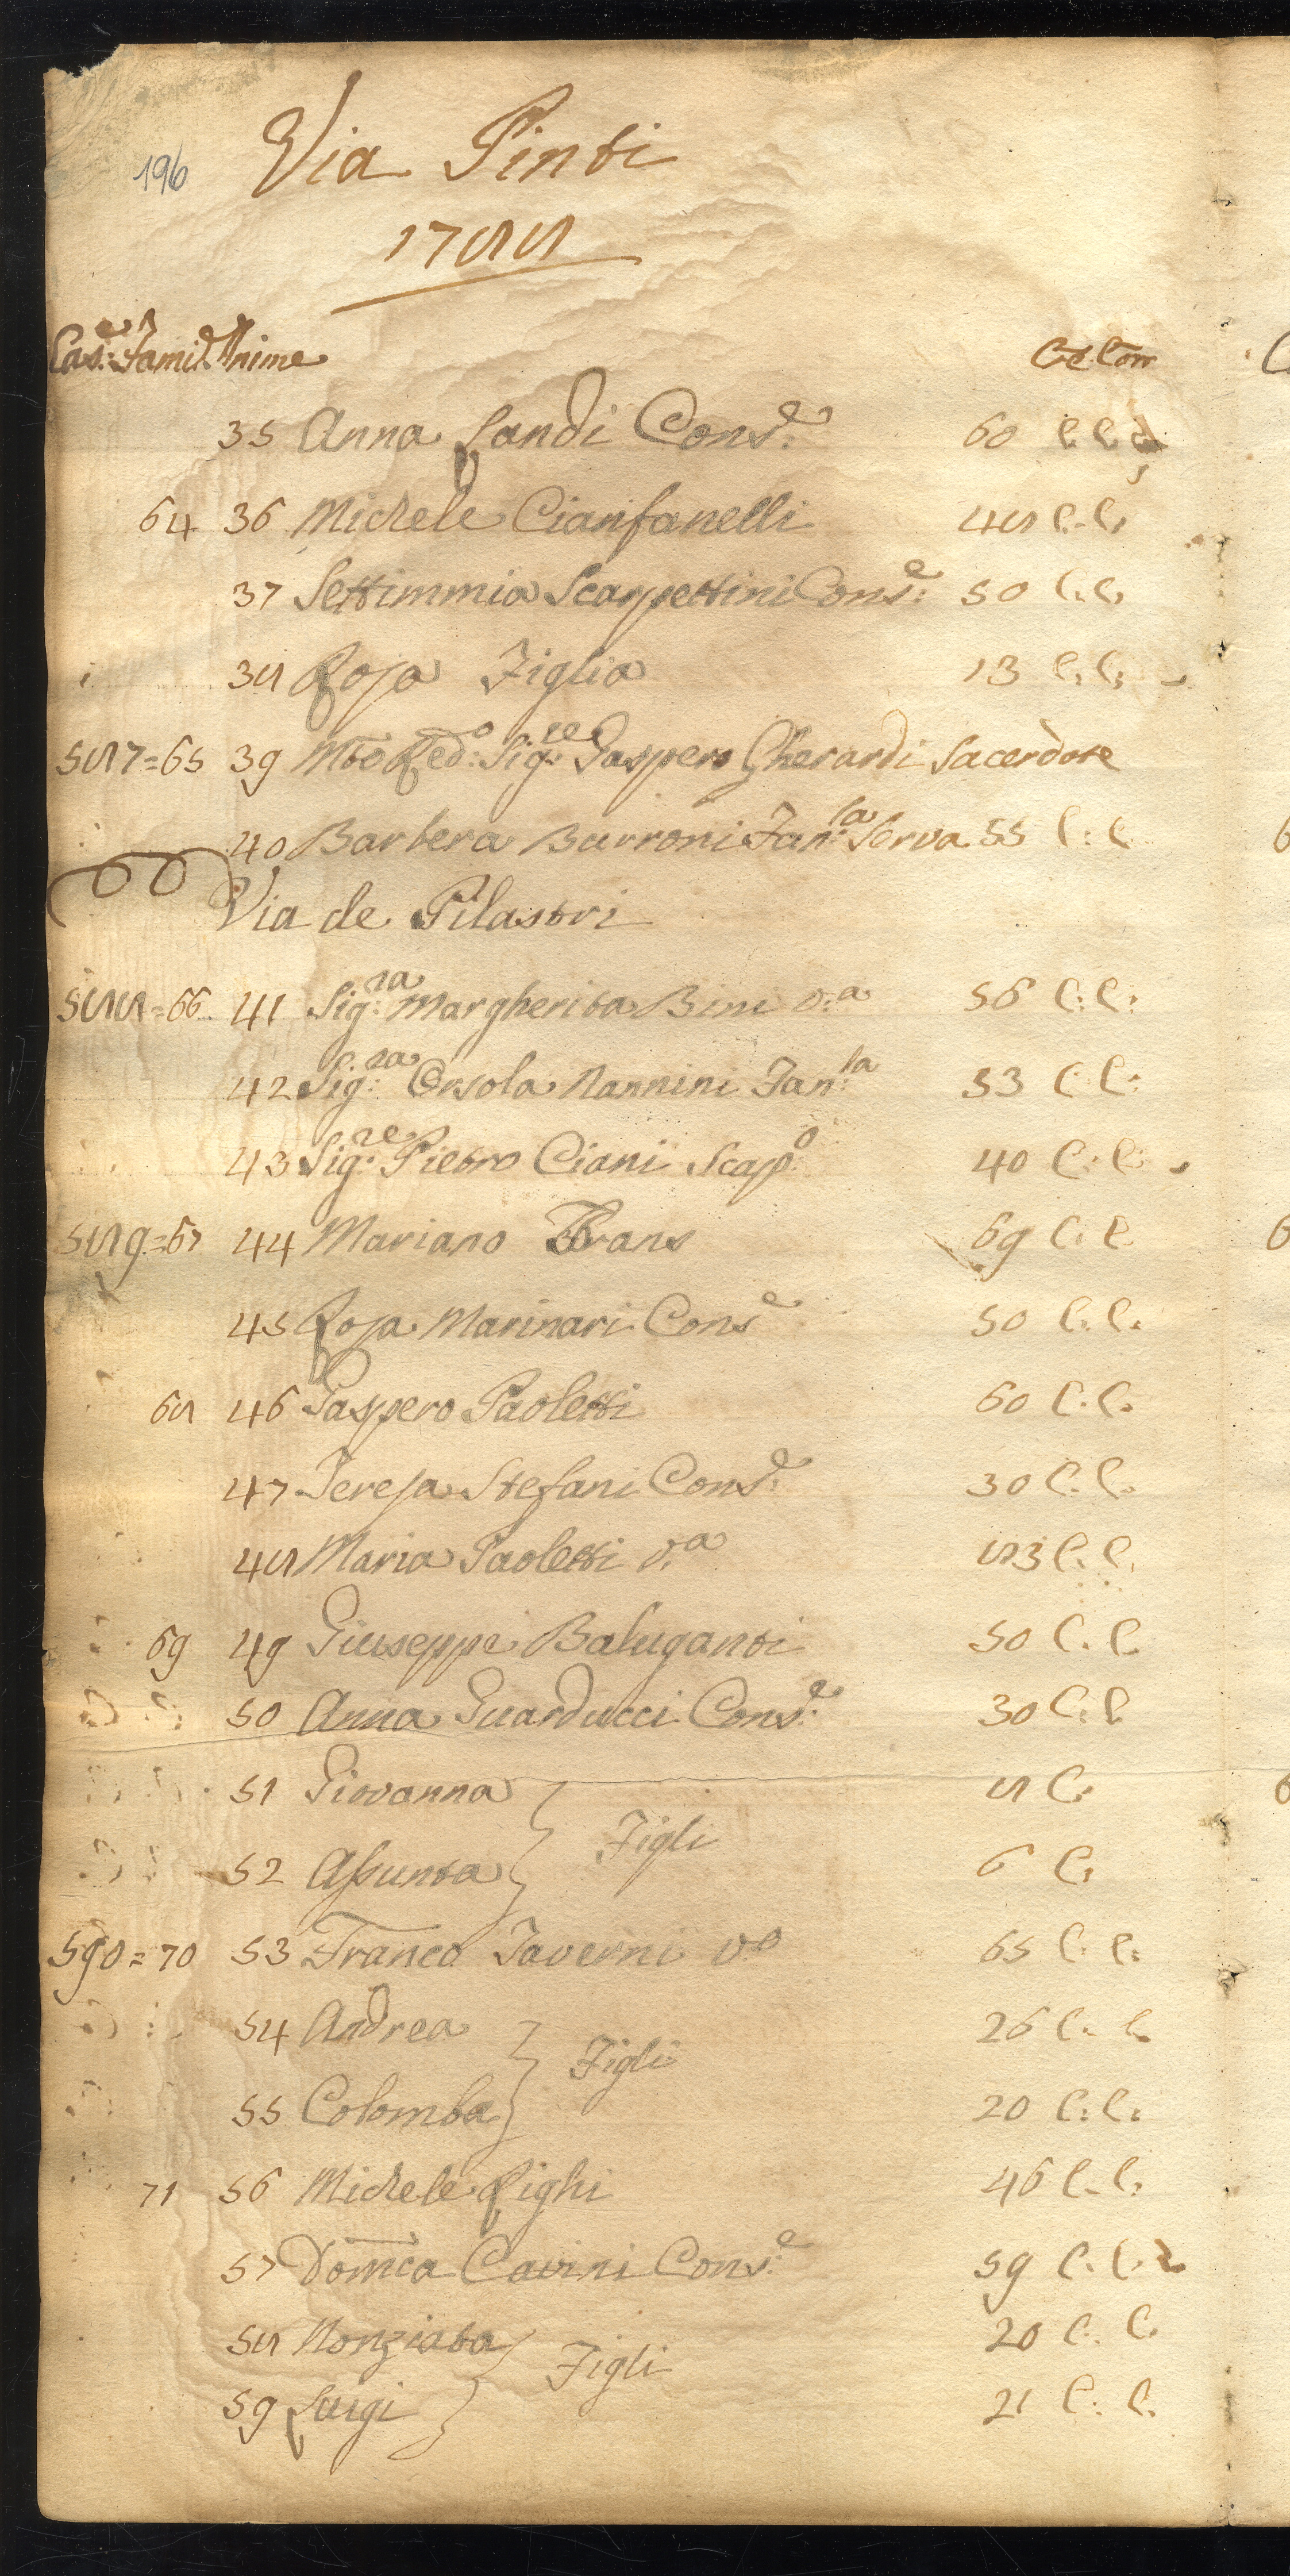 196
Via Pinti
1788
Cas.e Famil. Anime
Cre Com
35 Anna Landi Cons.e 60 C. C.
64 36 Michele Cianfanelli 48 C. C.
37 Settimmia Scarpettini Cons.e 50 C. C.
38 Rosa Figlia 13 C. C.
587=65 39 Mto Red.o Sig.re Gaspero Gherardi Sacerdote
40 Barbera Burroni Fan.la Serva 55 C. C.
Via de Pilastri
588=66 41 Sig.ra Margherita Bini v.a 56 C. C.
42 Sig.ra Orsola Nannini Fan.la 53 C. C.
43 Sig.re Pietro Ciani Scap.o 40 C. C.
589=67 44 Mariano Brans 69 C. C.
45 Rosa Marinari Cons.e 50 C. C.
68 46 Gaspero Paoletti 60 C. C.
47 Teresa Stefani Cons.e 30 C. C.
48 Maria Paoletti v.a 83 C. C.
69 49 Giuseppe Baluganti 50 C. C.
50 Anna Guarducci Cons.e 30 C. C.
51 Giovanna 8 C.
Figli
52 Assunta 6 C.
590=70 53 Franco Taverni vo 65 C. C.
54 Andrea 26 C. C.
Figli
55 Colomba 20 C. C.
71 56 Michele Righi 46 C. C.
57 Domca Cavini Cons.e 59 C. C.
58 Nonziata 20 C. C.
Figli
59 Luigi 21 C. C.